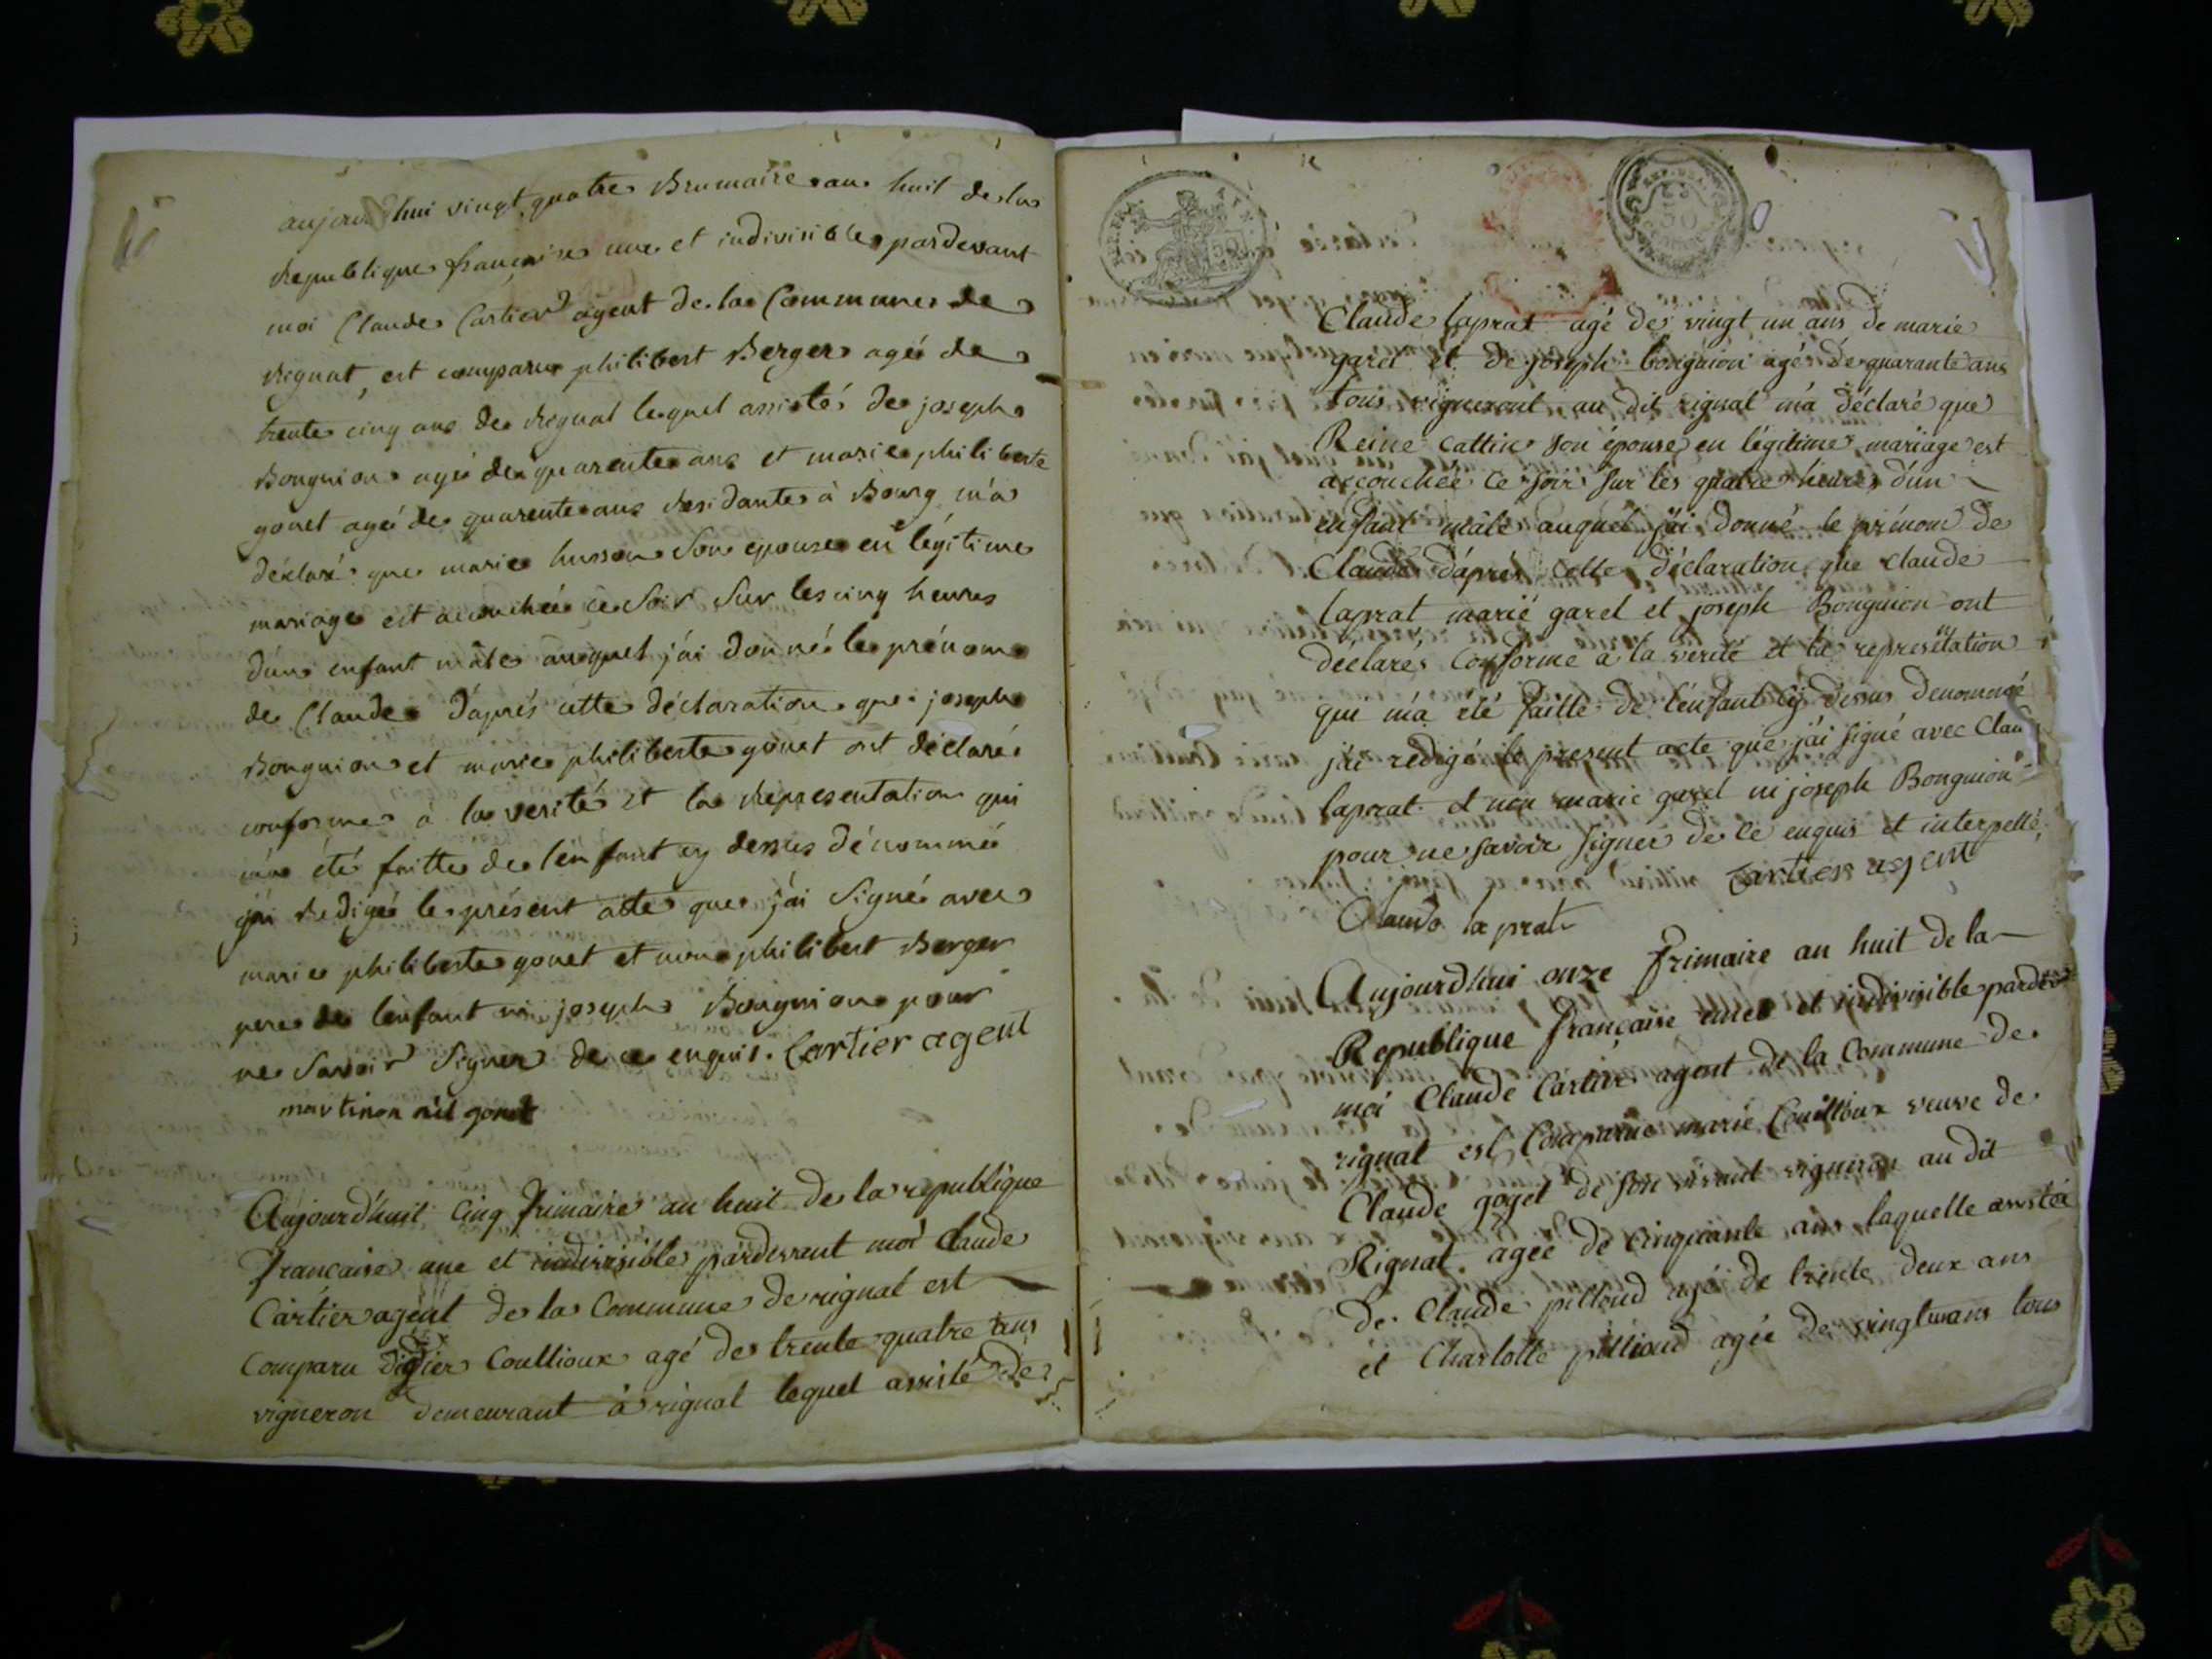 aujourdhui vingt quatre Brumaire an huit de la
Republique française une et indivisible pardevant
moi Claude Cartier agent de la Commune de
Rignat, est comparu philibert Berger agé de
trente cinq ans de Rignat lequel assisté de joseph
Bonguion agé de quarente ans et marie philiberte
gonet agée de quarente ans residante à Bourg m'a
déclaré que marie husson Son epouse en légitime
mariage est accouchée ce Soir Sur les cinq heures
d'un enfant mâle auquel j'ai donné le prénom
de Claude d'aprés cette déclaration que joseph
Bonguion et marie philiberte gonet ont déclaré
conforme à la verité et la Representation qui
m'a été faitte de l'enfant cy dessus dénommé
j'ai Redigé le présent acte que j'ai Signé avec
marie philiberte gonet et non philibert Berger
pere de l'enfant ni joseph Bonguion pour
ne Savoir Signer de ce enquis. Cartier agent
martinon gonet
Aujourd'huit Cinq frimaire an huit de la republique
française une et indivisible pardevant moi Claude
Cartier agent de la Commune de rignat est
comparu Didier Coullioux agé de trente quatre ans
vigneron demeurant à rignat lequel assisté de
REP. FRA.
50
Claude laprat agé de vingt un ans de marie
garel et de joseph bonguion agé de quarante ans
tous vigneront au dit rignat m'a déclaré que
Reine Cattin son épouse en légitime mariage est
accouchée ce soir sur les quatre heures d'un
enfant mâle auquel j'ai donné le prénom de
Claude d'après cette déclaration que claude
laprat marie garel et joseph Bonguion ont
déclarés conforme à la vérité et la represêtation
qui m'a été faitte de l'enfant cy dessus denommé
j'ai redigé le present acte que j'ai signé avec Clau
laprat et non marie garel ni joseph Bonguion
pour ne savoir signer de ce enquis et interpellé
Cartier agent
Claude la prat
Aujourdhui onze frimaire an huit de la
Republique française une et indivisible pardev
moi Claude Cartier agent de la Commune de
rignat est Comparue marie Coullioux veuve de
Claude goyet de son vivant vigneron au dit
Rignat agée de Cinquante ans laquelle assistée
de Claude pilloud agé de trente deux ans
et Charlotte pillioud agée de vingt un ans tous